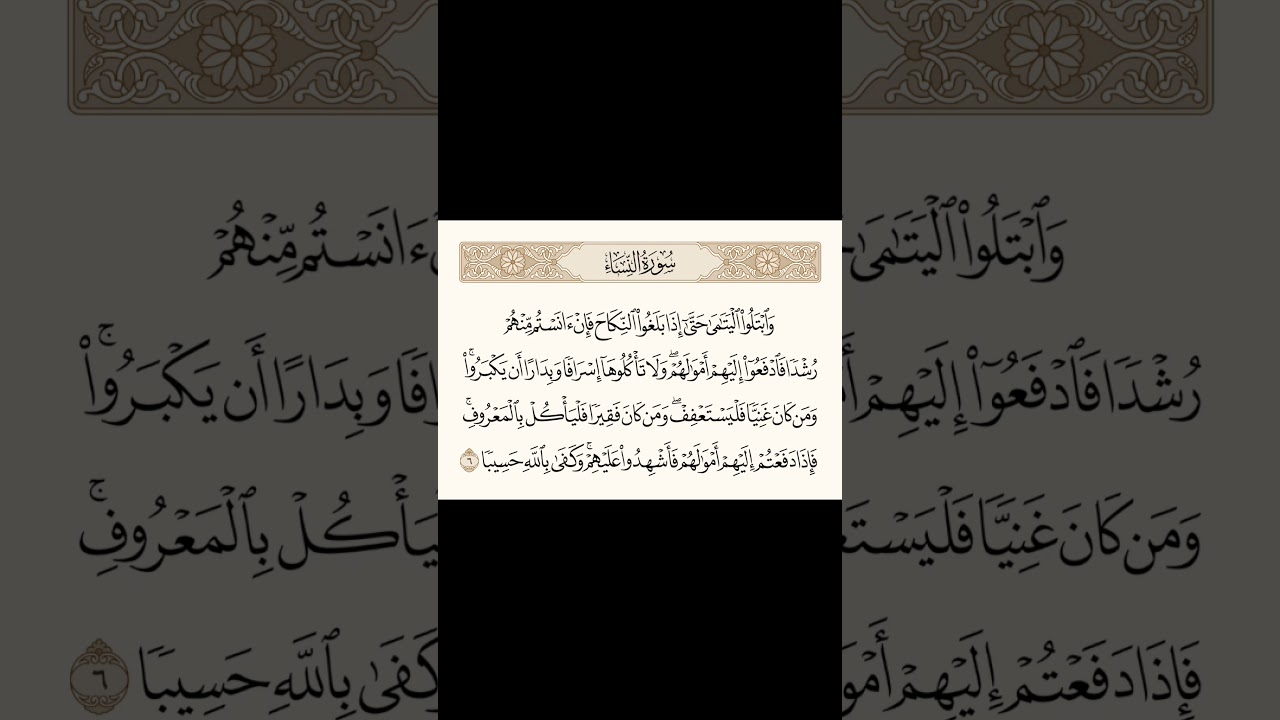 سُورَةُ النِّسَاءِ
وَٱبْتَلُوا۟ ٱلْيَتَـٰمَىٰ حَتَّىٰٓ إِذَا بَلَغُوا۟ ٱلنِّكَاحَ فَإِنْ ءَانَسْتُم مِّنْهُمْ
رُشْدًا فَٱدْفَعُوٓا۟ إِلَيْهِمْ أَمْوَٰلَهُمْ ۖ وَلَا تَأْكُلُوهَآ إِسْرَافًا وَبِدَارًا أَن يَكْبَرُوا۟ ۚ
وَمَن كَانَ غَنِيًّا فَلْيَسْتَعْفِفْ ۖ وَمَن كَانَ فَقِيرًا فَلْيَأْكُلْ بِٱلْمَعْرُوفِ ۚ
فَإِذَا دَفَعْتُمْ إِلَيْهِمْ أَمْوَٰلَهُمْ فَأَشْهِدُوا۟ عَلَيْهِمْ ۚ وَكَفَىٰ بِٱللَّهِ حَسِيبًا ٦